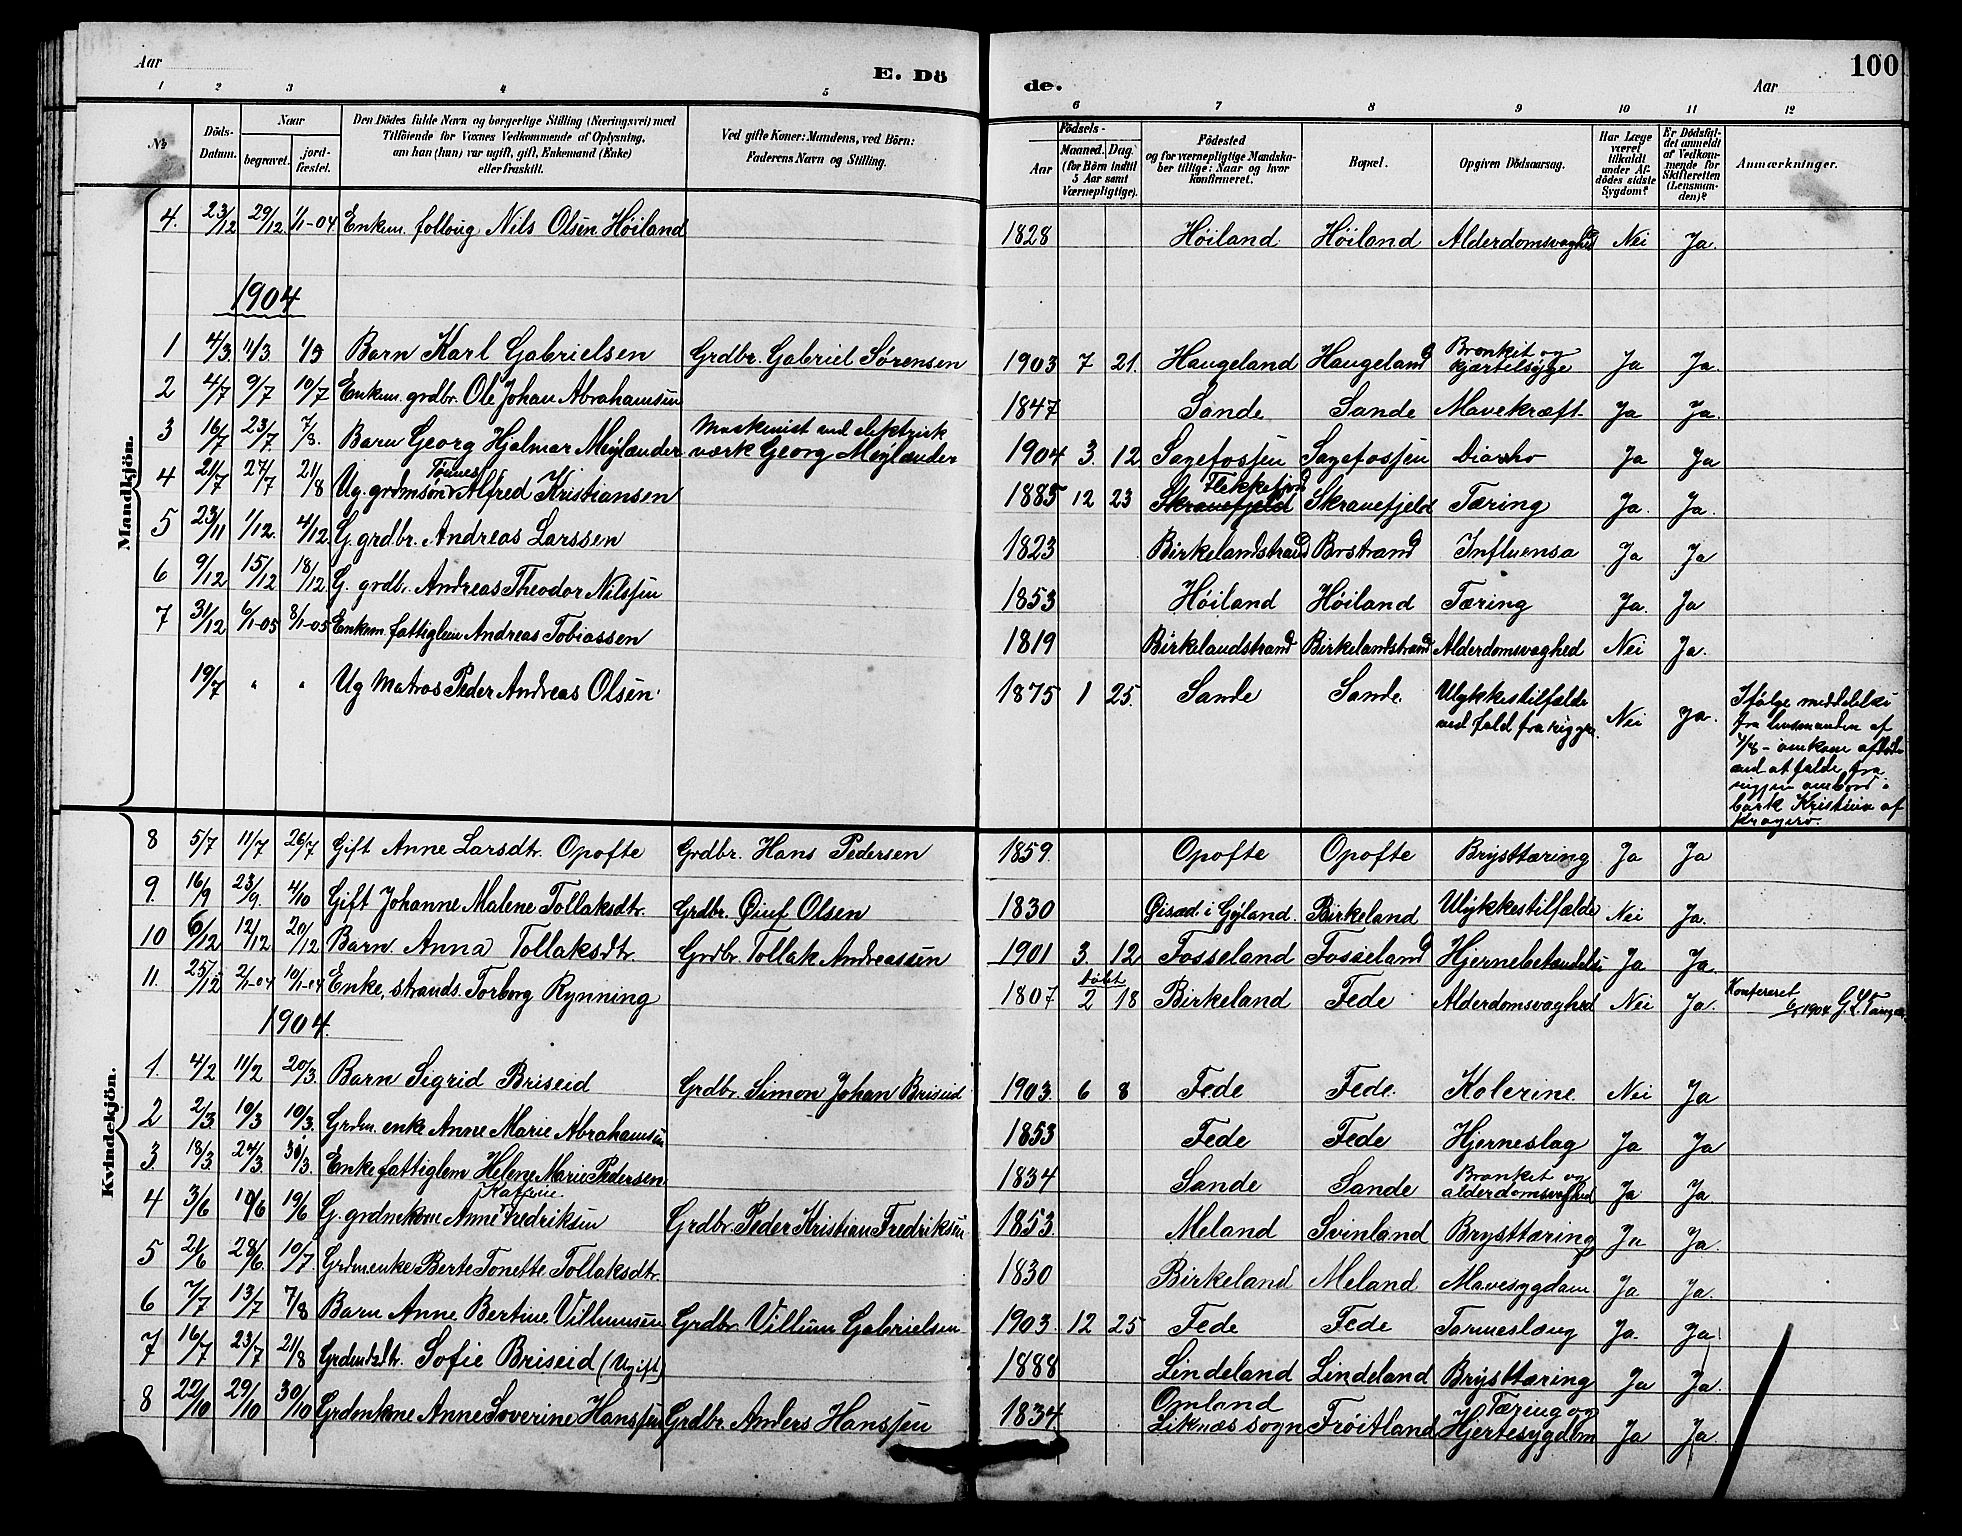 Aar
E. Dö
de.
Aar
100
1 2 3 4 5 6 7 8 9 10 11 12
No
Döds-
Datum.
Naar
begravet.
jord-
fæstet.
Den Dödes fulde Navn og borgerlige Stilling (Næringsvei) med
Tilföiende for Voxnes Vedkommende af Oplysning,
om han (hun) var ugift, gift, Enkemand (Enke)
eller fraskilt.
Ved gifte Koner: Mandens, ved Börn:
Faderens Navn og Stilling.
Födsels-
Aar
Maaned.
Dag.
(for Börn indtil
5 Aar samt
Værnepligtige).
Födested
og for værnepligtige Mandska-
ber tillige: Naar og hvor
konfirmeret.
Bopæl.
Opgiven Dödsaarsag.
Har Læge
været
tilkaldt
under Af-
dödes sidste
Sygdom?
Er Dödsfal-
det anmeldt
af Vedkom-
mende for
Skifteretten
(Lensman-
den)?
Anmærkninger.
Mandkjön.
4. 23/12 29/12. 1/1-04 Enkem. folloug Nils Olsen Höiland 1828 Höiland Höiland Alderdomsvaghed Nei Ja.
1904
1 4/3. 11/3. 1/3 Barn Karl Gabrielsen Grdbr. Gabriel Sörensen 1903 7 21. Haugeland Haugeland Bronkit og kjærtelsyge Ja Ja
2 4/7 9/7 10/7 Enkem. grdbr. Ole Johan Abrahamsen 1847 Sande Sande Mavekræft Ja Ja.
3 16/7 23/7. 7/8. Barn Georg Hjalmar Meylænder Maskinist ved elektrisk værk Georg Meylænder 1904 3. 12 Sagefossen Sagefossen Ja Ja
4 21/7 27/7 21/8 Ug. grdmsön Tönnes Alfred Kristiansen 1885 12 23 Skravefjeld Flekkefjord Skravefjeld Tæring Ja. Ja.
5 23/11 1/12. 4/12. G. grdbr. Andreas Larssen 1823 Birkelandstrand Brstrand Influensa Ja Ja
6 9/12 15/12 18/12 G. grdbr. Andreas Theodor Nilssen 1853 Höiland Höiland Tæring Ja. Ja
7 31/12 6/1-05 8/1-05 Enkem. fattiglem Andreas Tobiassen 1819 Birkelandstrand Birkelandstrand Alderdomsvaghed Nei Ja.
19/7 " " Ug Matros Peder Andreas Olsen 1875 1 25. Sande Sande. Ulykkestilfælde ved fald fra riggen. Nei Ja.
Ifölge meddelelse
fra lensmanden af
omkom afdöde
ved at falde fra
riggen ombord i
bark Kristina af
Kragerö.
Kvindekjön.
8 5/7 11/7 26/7 Gift Anne Larsdtr. Opofte Grdbr. Hans Pedersen 1859. Opofte Opofte Brysttæring Ja Ja
9. 16/9 23/9. 4/10 Gift Johanne Malene Tollaksdtr. Grdbr. Olsen 1830 i Gyland. Birkeland Ulykkestilfælde Nei Ja.
10 6/12 12/12 20/12 Barn. Anna Tollaksdtr. Grdbr. Tollak Andreassen 1901 3. 12 Fosseland Fosseland Hjernebetændelse Ja Ja.
11. 25/12 2/1-04 10/1-04 Enke, strands. Torborg Rynning 1807 döbt 2 18 Birkeland Fede Alderdomsvaghed Nei Ja. Konfereret 1904
1904.
1. 4/2 11/2 20/3. Barn Sigrid Briseid Grdbr. Simon Johan Briseid 1903. 6 8 Fede Fede. Kolerine Nei Ja
2 2/3 10/3 10/3. Grdm. enke Anne Marie Abrahamsen 1853 Fede Fede Hjerneslag Ja Ja
3. 18/3. 24/3 30/3. Enke fattiglem Helene Marie Pedersen 1834 Sande Sande Bronkit og alderdomsvaghed Ja Ja
4 3/6 10/6 19/6 G. grdmkone Anne Katrine Fredriksen Grdbr. Peder Kristian Fredriksen 1853. Meland Svinland Brysttæring Ja Ja.
5 21/6 28/6. 10/7. Grdmenke Berte Tonette Tollaksdtr. 1830 Birkeland Meland Mavesygdom Ja Ja.
6 7/7 13/7 7/8 Barn Anne Bertine Villumsen Grdbr. Villum Gabrielsen 1903. 12 25 Fede Fede Tarmeslæng Ja. Ja
7 16/7 23/7 21/8 Grdmdtr. Sofie Briseid (Ugift) 1888 Lindeland Lindeland Brysttæring Ja Ja.
8 22/10 29/10 30/10 Grdmkone Anne Soverine Hanssen Grdbr. Anders Hanssen 1834. Omland Liknæs sogn Fröitland Tæring og Hjertesygdom Ja Ja.